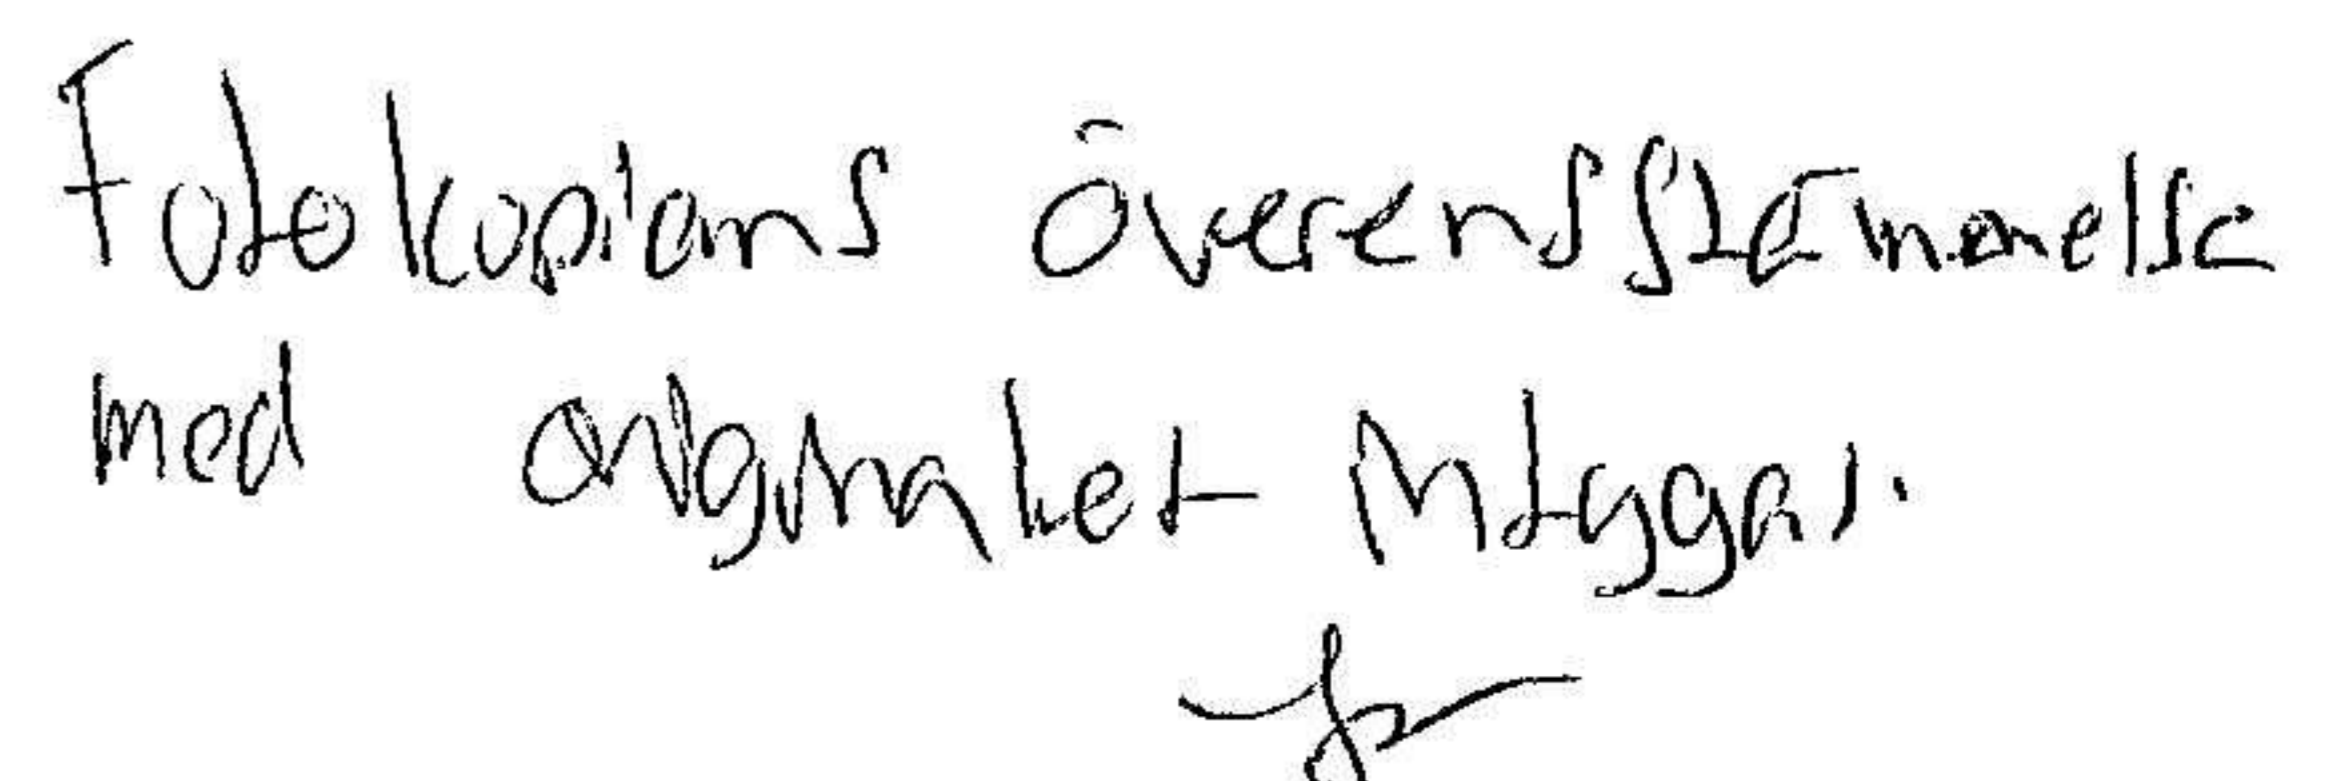 Fotokopians överensstämmelse
med originalet intyggas.